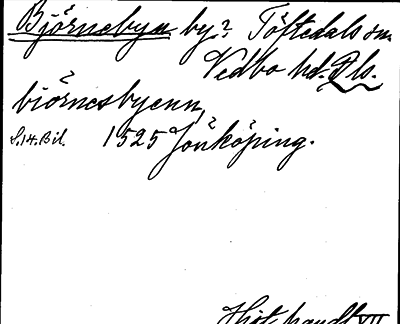 Björnebyn by? Töftedals sn.
Vedbo hd. Dls.
biörnesbyenn,
S.14.Bil. 1525 Jönköping.
Hist. handl. VII